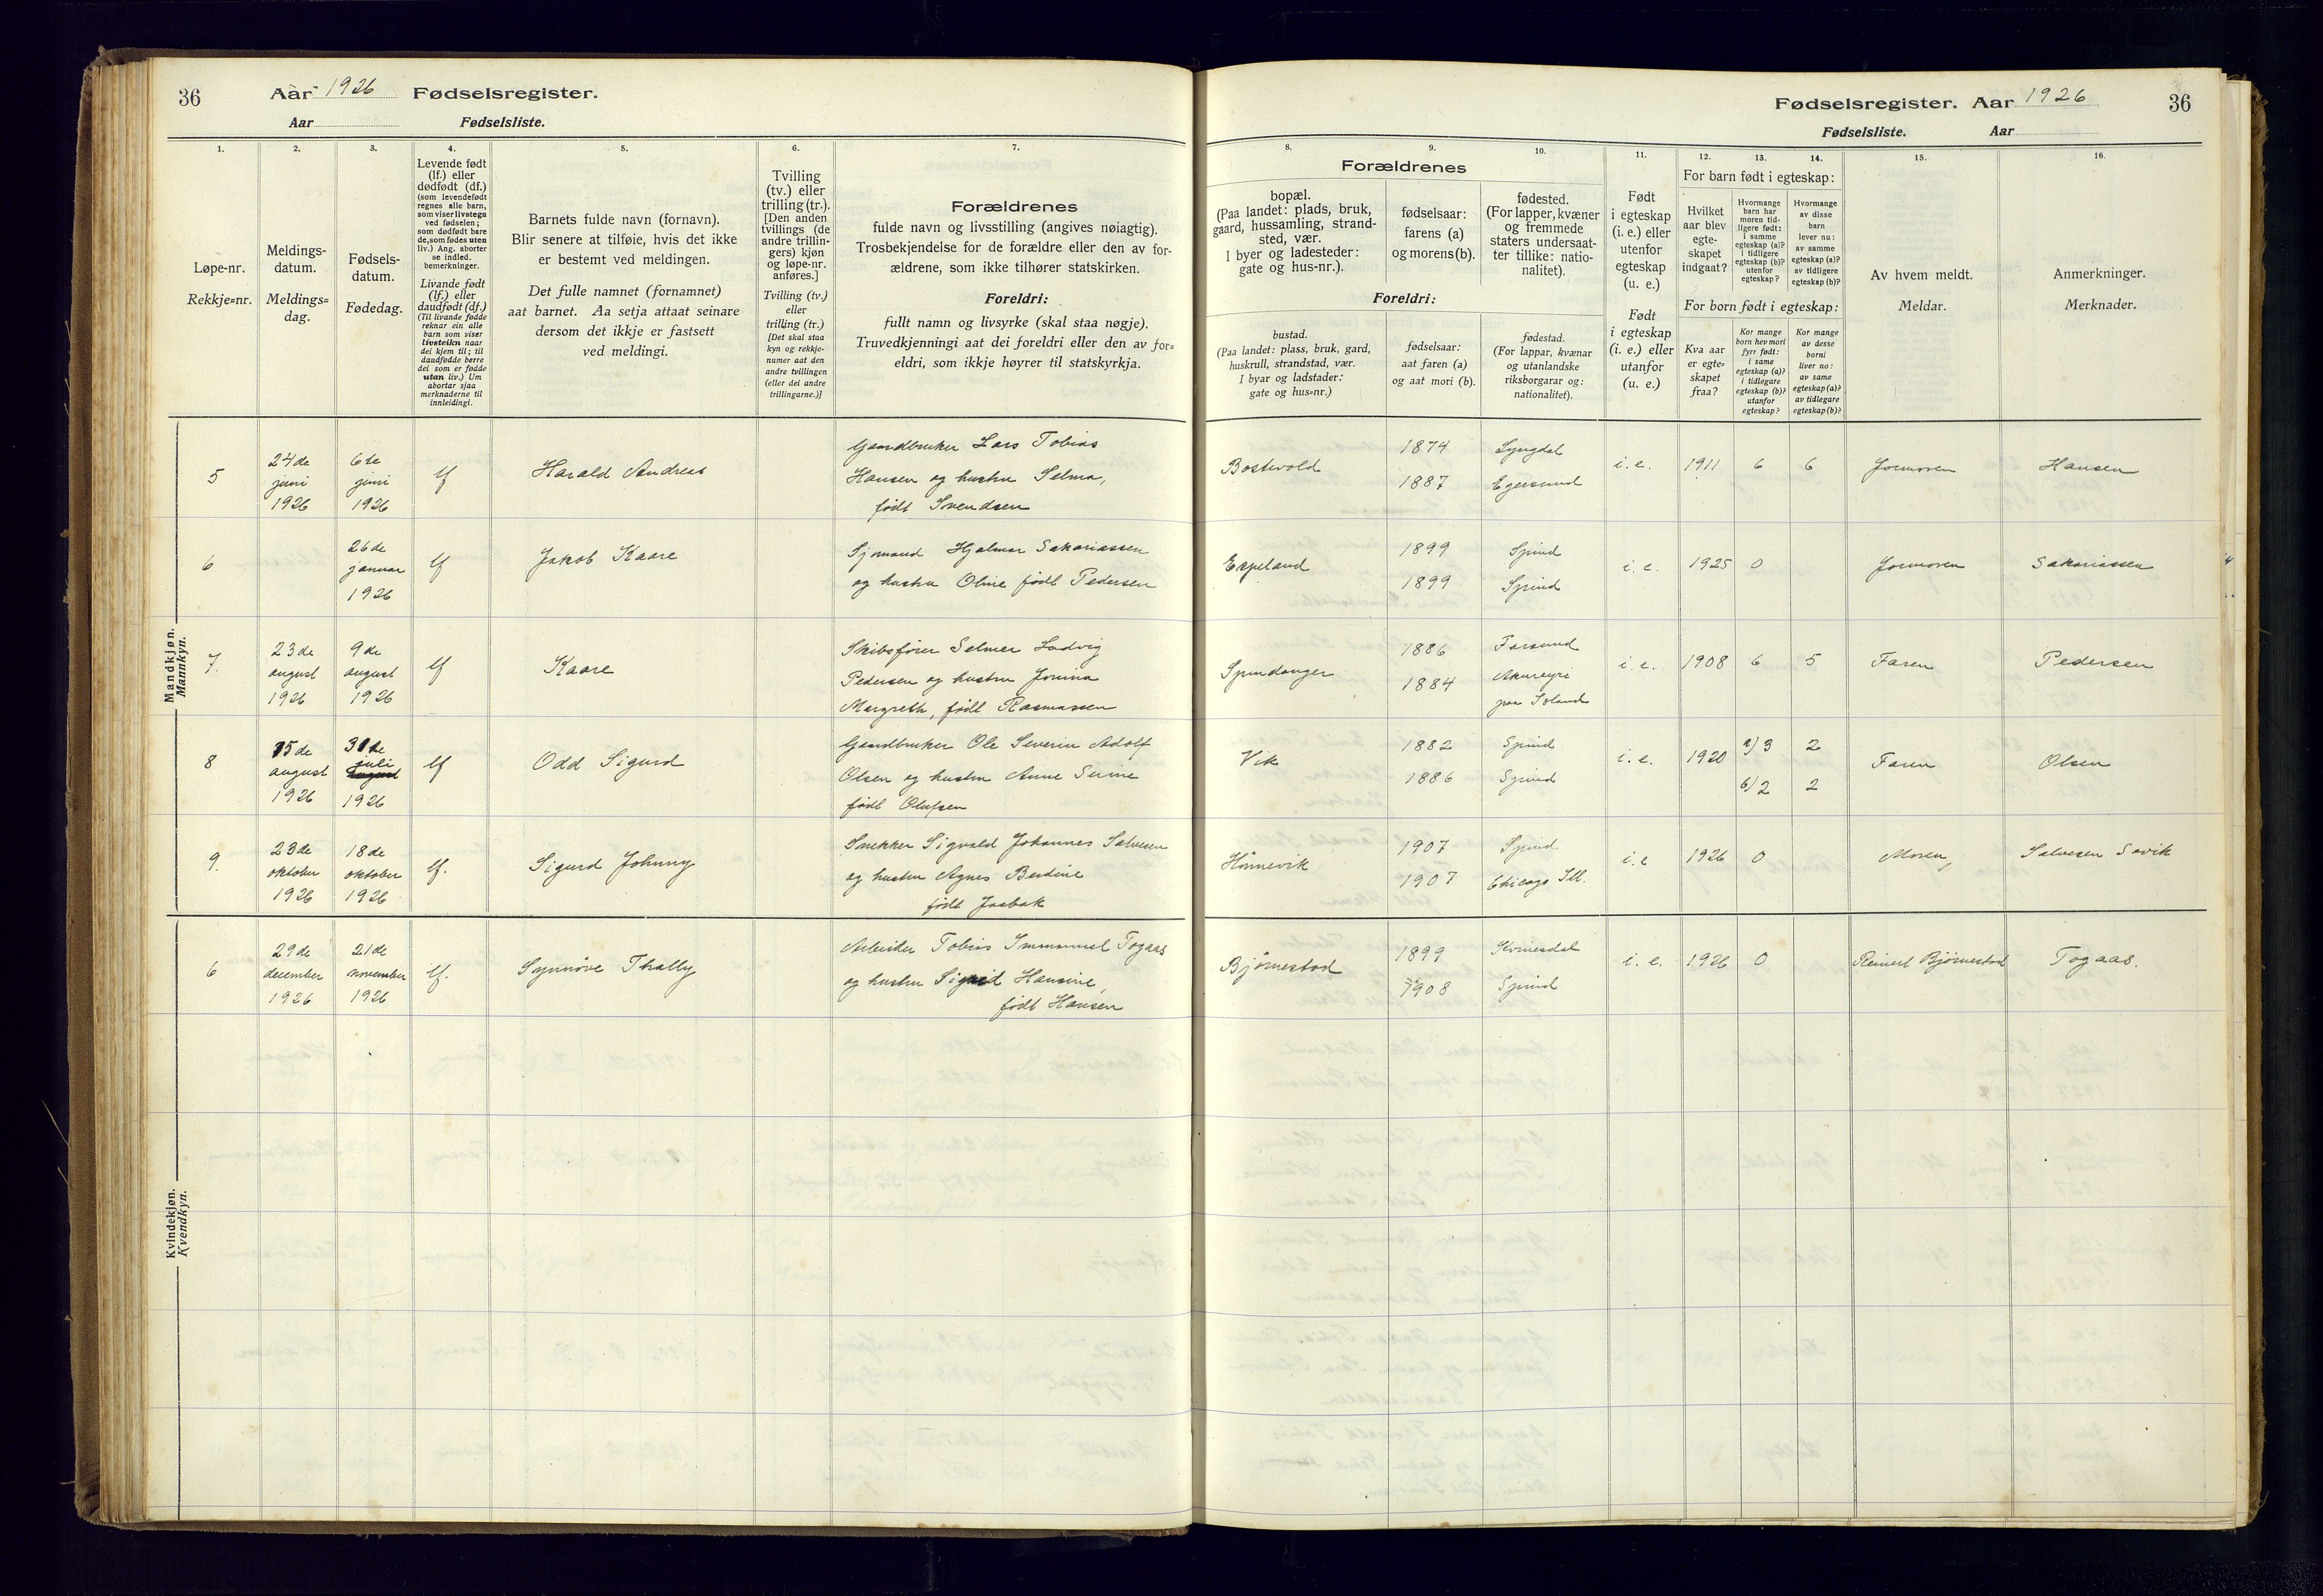 36 Aar 1926 Fødselsregister.
Aar Fødselsliste.
1. 2. 3. 4. 5. 6. 7.
Løpe-nr.
Rekkje=nr.
Meldings-
datum.
Meldings=
dag.
Fødsels-
datum.
Fødedag.
Levende født
(lf.) eller
dødfødt (df.)
(som levendefødt
regnes alle barn,
som viser livstegn
ved fødselen;
som dødfødt bare
de, som fødes uten
liv.) Ang. aborter
se indled.
bemerkninger.
Livande født
(lf.) eller
daudfødt (df.)
(Til livande fødde
reknar ein alle
barn som viser
livsteikn naar
dei kjem til; til
daudfødde berre
dei som er fødde
utan liv.) Um
abortar sjaa
merknaderne til
innleidingi.
Barnets fulde navn (fornavn).
Blir senere at tilføie, hvis det ikke
er bestemt ved meldingen.
Det fulle namnet (fornamnet)
aat barnet. Aa setja attaat seinare
dersom det ikkje er fastsett
ved meldingi.
Tvilling
(tv.) eller
trilling (tr.).
[Den anden
tvillings (de
andre trillin-
gers) kjøn
og løpe-nr.
anføres.]
Tvilling (tv.)
eller
trilling (tr.)
[Det skal staa
kyn og rekkje-
numer aat den
andre tvillingen
(eller dei andre
trillingarne.)]
Forældrenes
fulde navn og livsstilling (angives nøiagtig).
Trosbekjendelse for de forældre eller den av for-
ældrene, som ikke tilhører statskirken.
Foreldri:
fullt namn og livsyrke (skal staa nøgje).
Truvedkjenningi aat dei foreldri eller den av for=
eldri, som ikkje høyrer til statskyrkja.
Mandkjøn.
Mannkyn.
5
24de
juni
1926
6te
juni
1926
lf
Harald Andreas
Gaardbruker Lars Tobias
Hansen og hustru Selma,
født Svendsen
6
26de
januar
1926
lf
Jakob Kaare
Sjømand Hjalmar Sakariassen
og hustru Oline født Pedersen
7.
23de
august
1926
9de
august
1926
lf
Kaare
Skibsfører Selmer Ludvig
Pedersen og hustru Jonina
Margreth, født Rasmussen
8
15de
august
1926
31te
juli
august
1926
lf
Odd Sigurd
Gaardbruker Ole Severin Adolf
Olsen og hustru Anne Serine
født Olufsen
9.
23de
oktober
1926
18de
oktober
1926
lf.
Sigurd Johnny
Snekker Sigvald Johannes Salvesen
og hustru Agnes Berdine
født Josbak
Kvindekjøn.
Kvendkyn.
6
29de
december
1926
21de
november
1926
lf.
Synnöve Thalby
Arbeider Tobias Immanuel Togaas
og hustru Sigrid Hansine,
født Hansen
Fødselsregister. Aar 1926 36
Fødselsliste. Aar
8. 9. 10. 11. 12. 13. 14. 15. 16.
Forældrenes
bopæl.
(Paa landet: plads, bruk,
gaard, hussamling, strand-
sted, vær.
I byer og ladesteder:
gate og hus-nr.).
fødselsaar:
farens (a)
og morens (b).
fødested.
(For lapper, kvæner
og fremmede
staters undersaat-
ter tillike: natio-
nalitet).
Foreldri:
bustad.
(Paa landet: plass, bruk, gard,
huskrull, strandstad, vær.
I byar og ladstader:
gate og hus=nr.)
fødselsaar:
aat faren (a)
og aat mori (b).
fødestad.
(For lappar, kvænar
og utanlandske
riksborgarar og:
nationalitet).
Født
i egteskap
(i. e.) eller
utenfor
egteskap
(u. e.)
Født
i egteskap
(i. e.) eller
utanfor
(u. e.)
For barn født i egteskap:
Hvilket
aar blev
egte-
skapet
indgaat?
Hvormange
barn har
moren tid-
ligere født:
i samme
egteskap (a)?
i tidligere
egteskap (b)?
utenfor
egteskap?
Hvormange
av disse
barn
lever nu:
av samme
egteskap (a)?
av tidligere
egteskap (b)?
For born født i egteskap:
Kva aar
er egte=
skapet
fraa?
Kor mange
born hev mori
fyrr født:
i same
egteskap (a)?
i tidlegare
egteskap (b)?
utanfor
egteskap?
Kor mange
av desse
borni
liver no:
av same
egteskap (a)?
av tidlegare
egteskap (b)?
Av hvem meldt.
Meldar.
Anmerkninger.
Merknader.
1874 Lyngdal
Bostvold i. e. 1911 6 6 Jormoren Hansen
1887 Egersund
1899 Spind
Espeland i. e. 1925 0 Jormoren Sakariassen
1899 Spind
1886 Farsund
Spindanger i. e. 1908 6 5 Faren Pedersen
1884 Akureyri
paa Island
1882 Spind a) 3 2
Vik i. e. 1920 Faren Olsen
1886 Spind b) 2 2
1907 Spind
Hönnevik i. e 1926 0 Moren, Salvesen Søvik
1907 Chicago Ill.
1899 Kvinesdal
Björnestad i. e. 1926 0 Reinert Björnestad Togaas.
1908 Spind